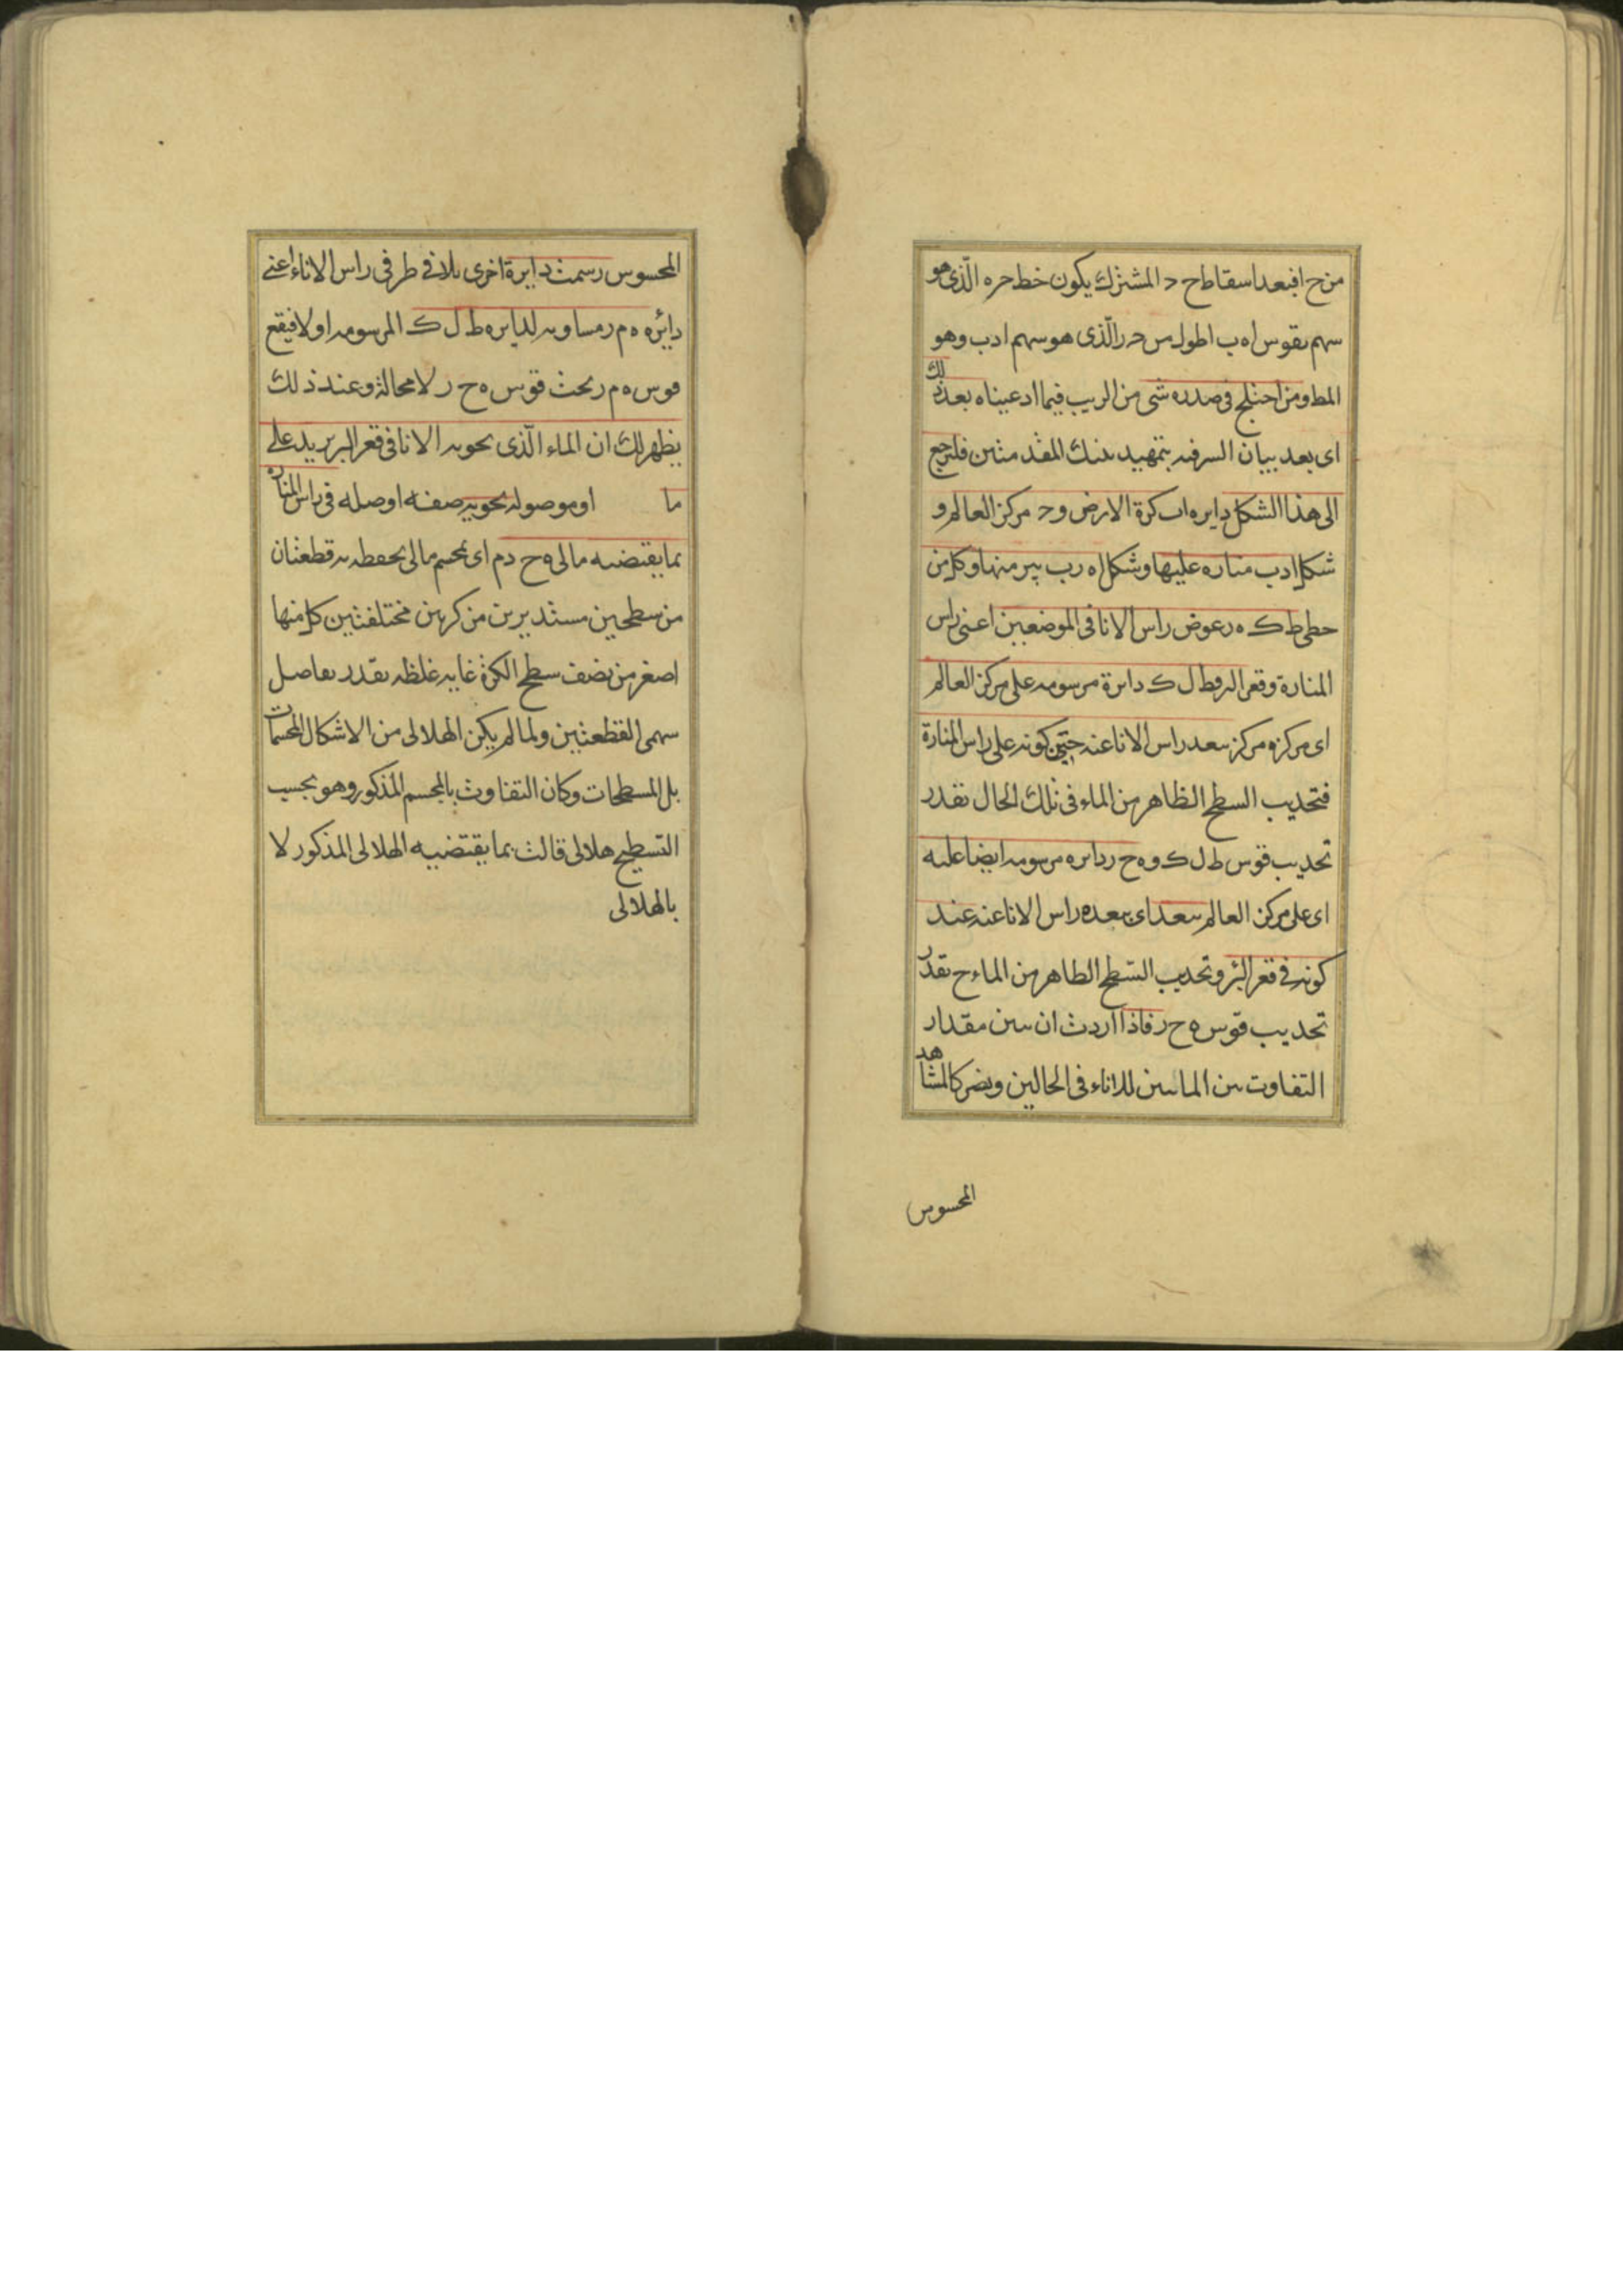 من ح ا فبعد اسقاط ح د المشترك يكون خط حره الّذى هو
سهم بقوس اه ب اطول من حر الّذى هو سهم ادب وهو
المط ومن اختلج فى صدره شى من الريب فيما ادعيناه بعد ذلك
اى بعد بيان السرفيه بتمهيد تينك المقدمتين فليرجع
الى هذا الشكل دايره اب كرة الارض و ح مركز العالم و
شكل ادب مناره عليها وشكل اه رب بير منها وكل من
خطى ط ك ه ر عوض راس الانا فى الموضعين اعنى راس
المنارة وقعر البر وط ل ك دايرة مرسومه على مركز العالم
اى مركزه مركز ببعد راس الانا عنه حين كونه على راس المنارة
فتحديب السطح الظاهر من الماء فى تلك الحال بقدر
تحديب قوس ط ل ك و ه ح ر دايره مرسومه ايضا عليه
اى على مركز العالم ببعد اى ببعده راس الانا عنه عند
كونه فى قعر البئر وتحديب السّطح الظاهر من الماء ح بقدر
تحديب قوس ه ح ر فاذا اردت ان يبين مقدار
التفاوت بين المايين للاناء فى الحالين ويصير كالمشاهد
المحسوس
المحسوس رسمت دايرة اخرى بلاقى طرفى راس الاناء اعنى
دايره ه م ر مساويه لدايره ط ل ك المرسومه اولا فيقع
قوس ه م ر تحت قوس ه ح ر لا محالة وعند ذلك
يظهر لك ان الماء الّذى يحويه الانا فى قعر البر يزيد على
ما او موصوله يحويه صفته او صله فى راس المناره
بما يقتضيه مالى ه ح د م اى مجسم مالى يحيط به قطعتان
من سطحين مستديرين من كرتين مختلفتين كل منها
اصغر من نصف سطح الكرة غايه غلظه بقدر تفاضل
سهمى القطعتين ولما لم يكن الهلالى من الاشكال المجسمات
بل المسطحات وكان التفاوت بالمجسم المذكور وهو بحسب
التسطيح هلالى قالت بما يقتضيه الهلالى المذكور لا
بالهلالى